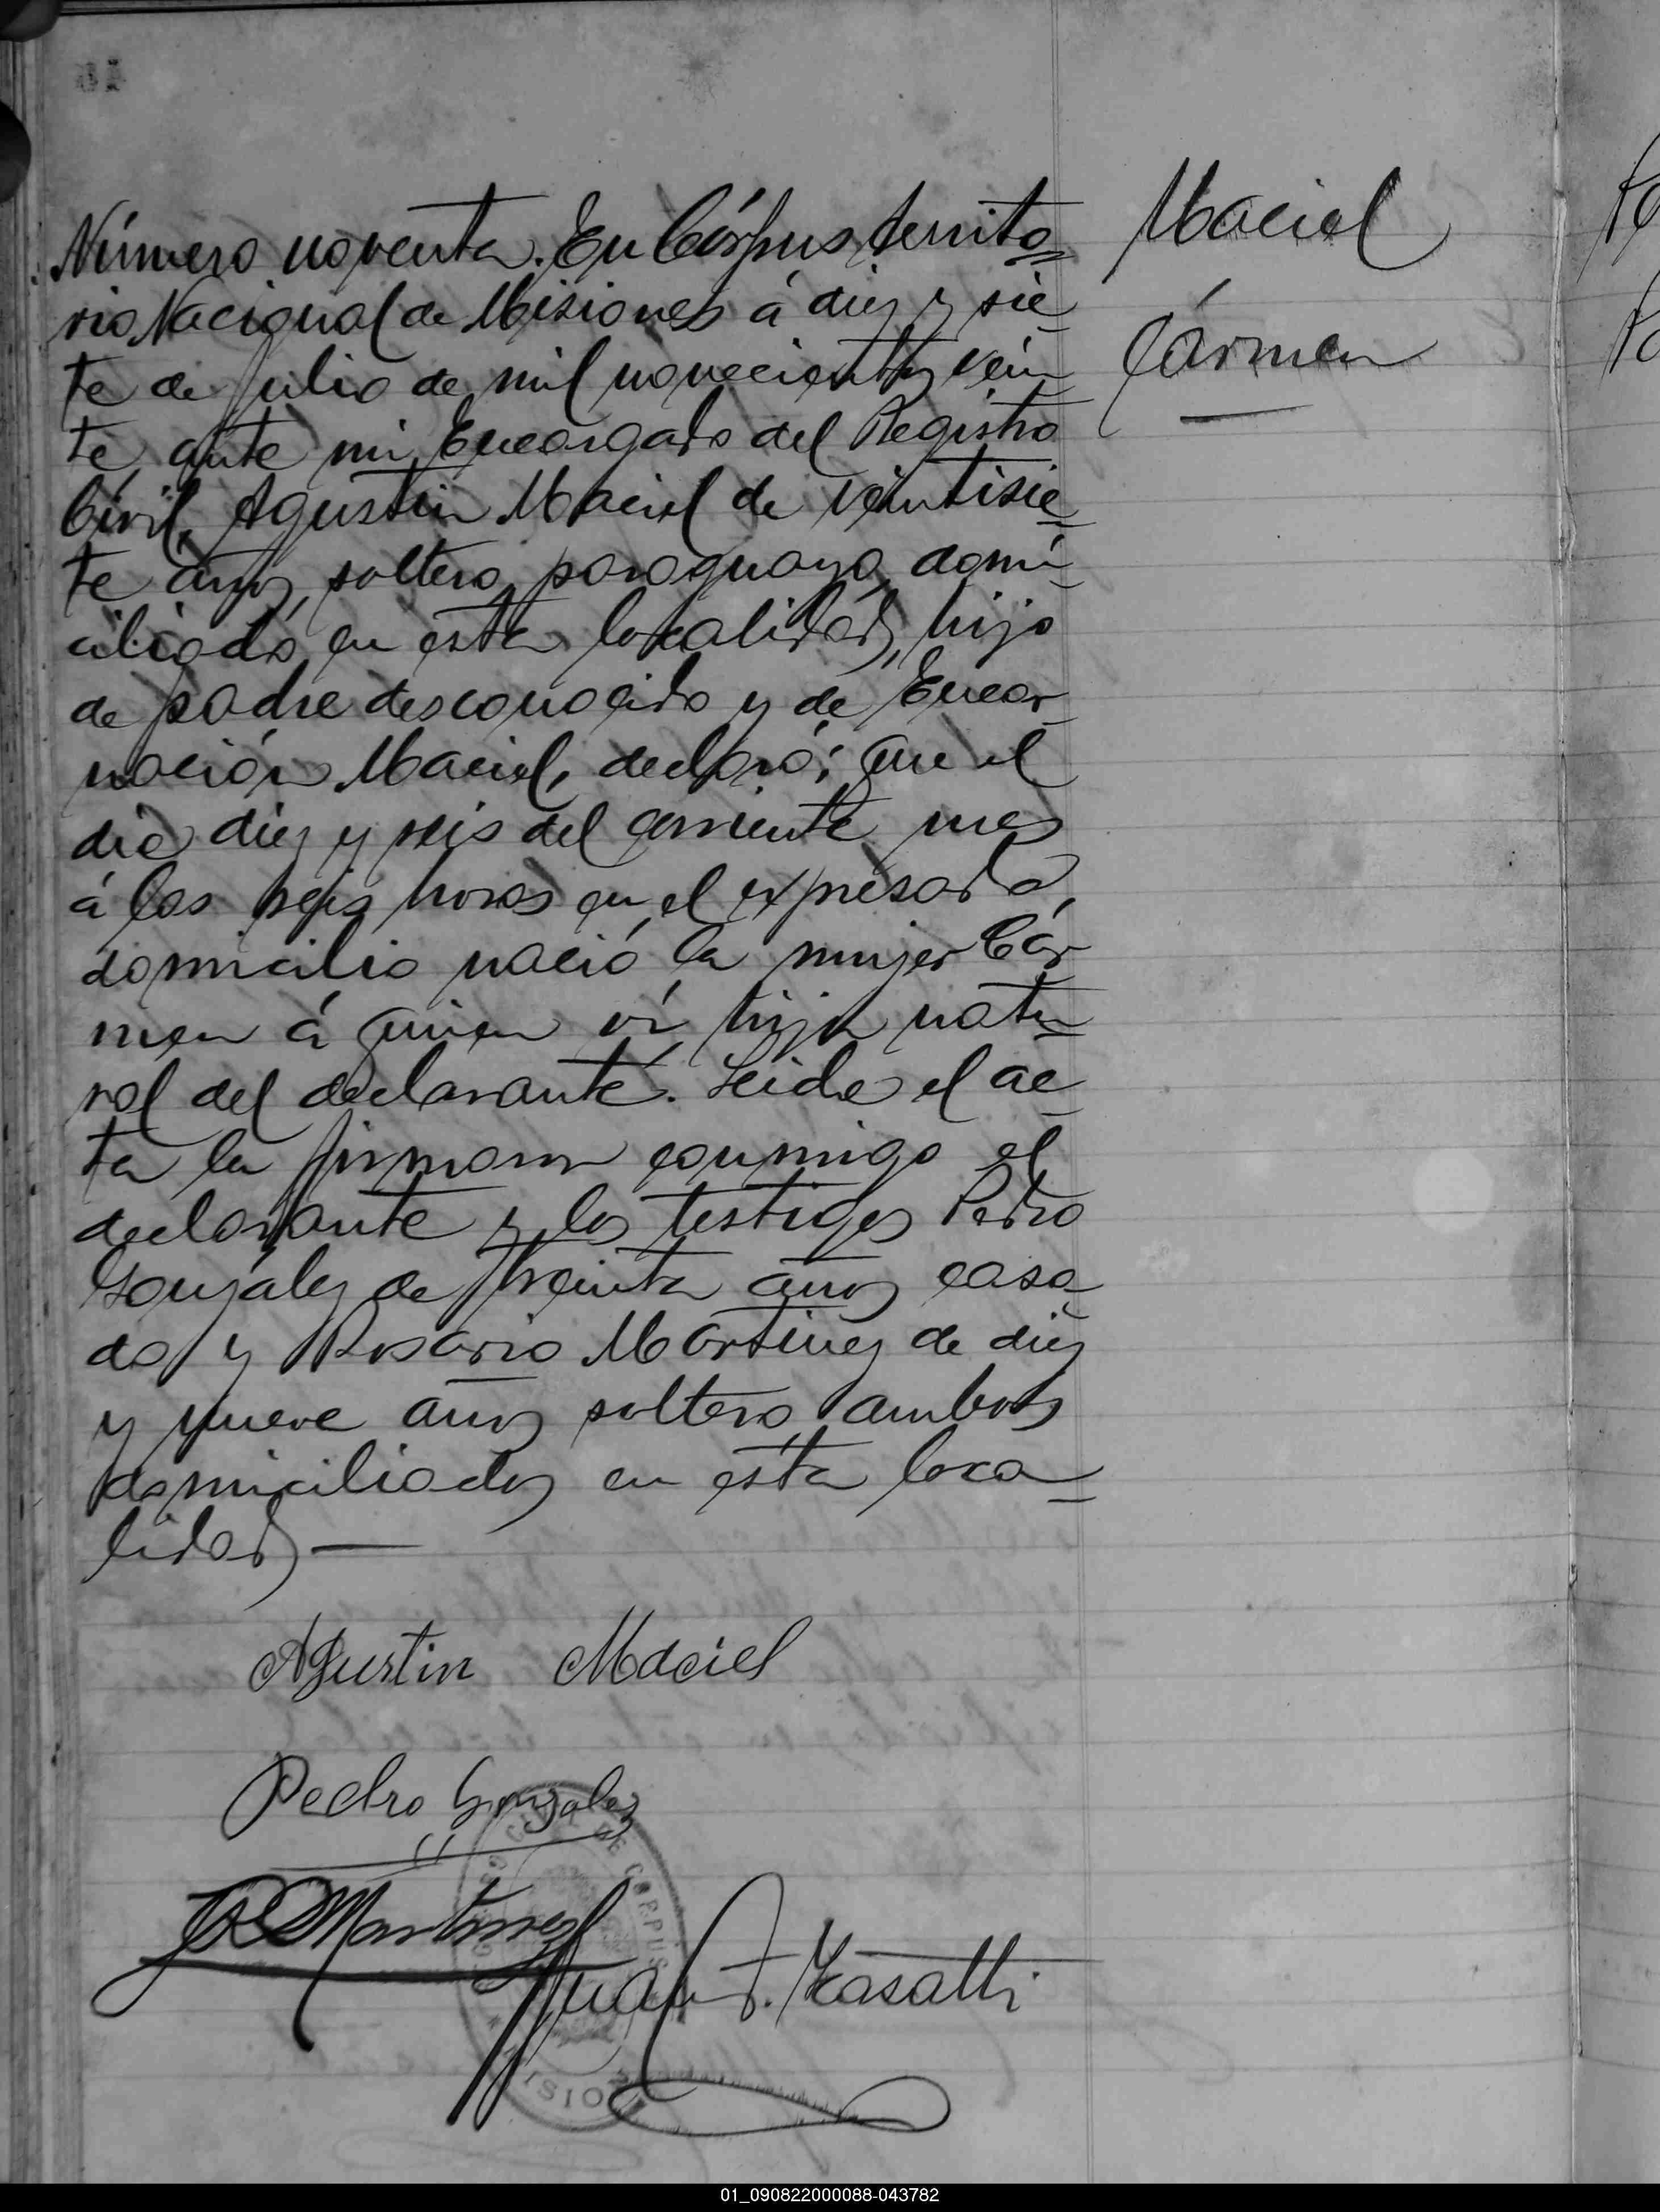 Número noventa. En Córpus territo=
rio Nacional de Misiones á diez y sie_
te de Julio de mil novecientos vein_
te, ante mi Encargado del Registro
Civil, Agustin Maciel de veintisie_
te años, soltero, paraguayo, domi_
ciliado en esta localidad, hijo
de padre desconocido y de Encar_
nación Maciel, declaró; que el
dia diez y seis del corriente mes
á las seis horas en el expresado
domicilio nació la mujer Cár_
men á quien vi hija natu_
ral del declarante. Leida el ac_
ta la firmaron conmigo el
declarante y los testigos Pedro
Gonzáley de treinta años casa_
do y Rosario Martinez de diez
y nueve años soltero, ambos
domiciliados en esta loca_
lidad —
Maciel
Cármen
Agustin Maciel
Pedro Gonzalez
R Martinez
Juan F.
DE CORPUS
MISION
01_090822000088-043782